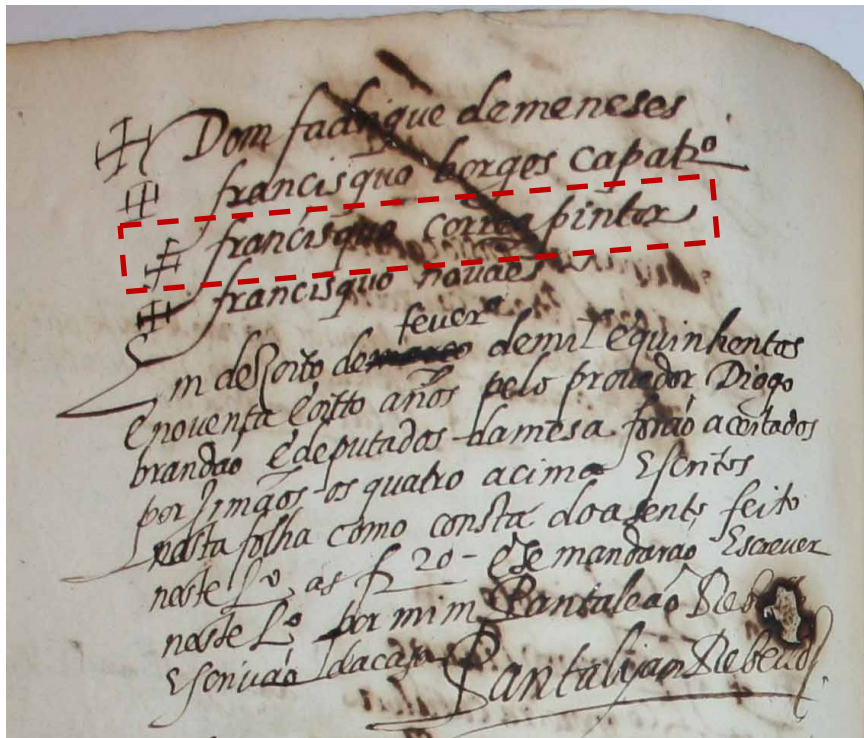 Dom fadrique de meneses
francisquo borges capatro
francisquo correa pintor
francisquo novaes
fever.o
Em dezoito de demil e quinhentos
e noventa e oitto años pelo provedor Diogo
brandão e deputados da mesa forão aceitados
por Irmãos os quatro acima Escritos
nesta folha como consta do asento feito
neste L.o as f 20 - e se mandarão Escrever
neste L.o por mim Pantaleão Reb
Escrivão da casa
Pantalijao Rebello